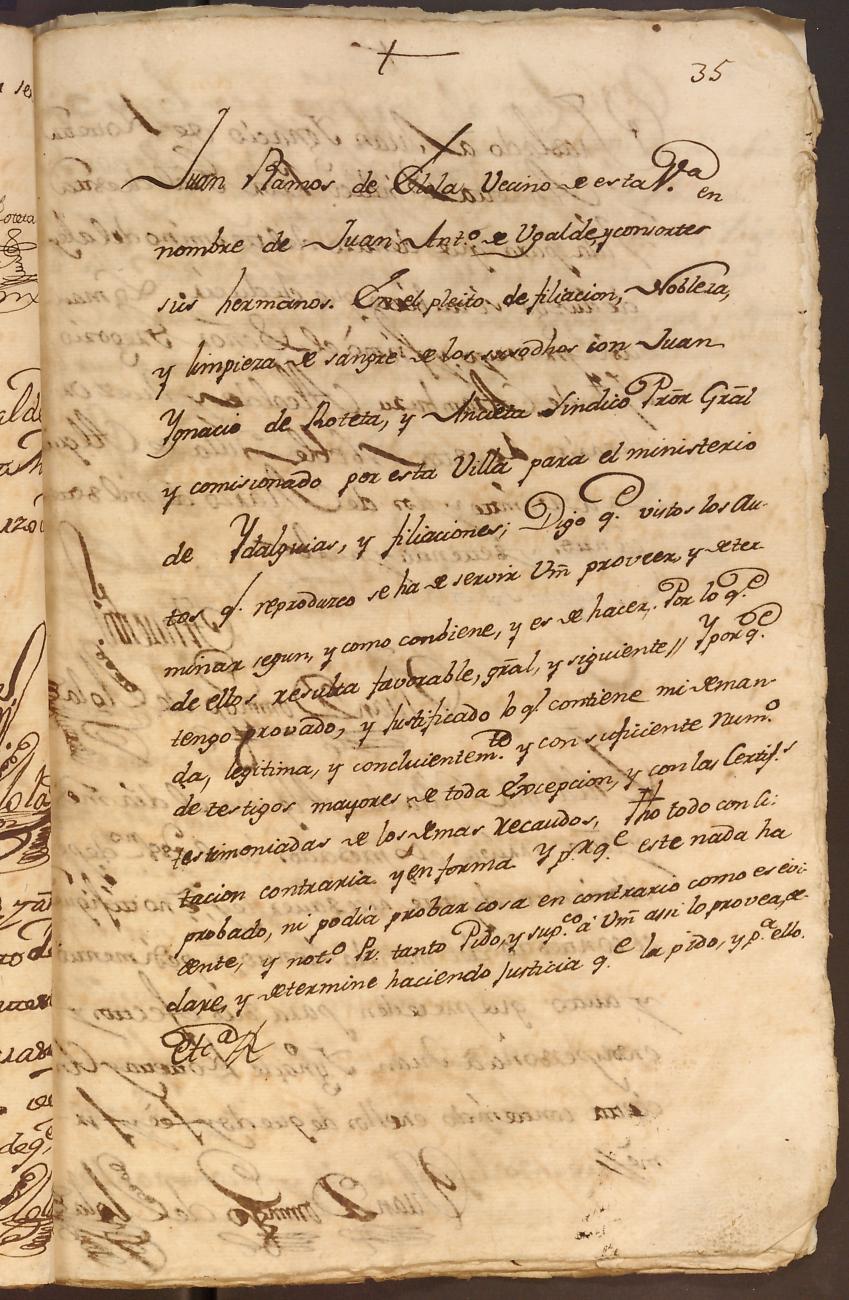 35
Juan Ramos de Elola Vecino de esta V.ª en
nombre de Juan Ant.º de Ugalde, y consortes
sus hermanos. En el pleito de filiacion, Nobleza,
y limpieza de sangre de los susodhos con Juan
Ygnacio de Roteta, y Ancieta Sindico Pror Gral
y comisionado por esta Villa para el ministerio
de Ydalguias, y filiaciones; Digo q.e vistos los Au-
tos q.e reproduzco se ha de servir Vm proveer, y deter
minar segun, y como conbiene, y es de hacer. Por lo q.e
de ellos resulta favorable, gral, y siguiente // Y por q.e
tengo provado, y Justificado lo q.l contiene mi deman-
da, legitima, y concluientem.te y con suficiente num.º
de testigos mayores de toda Excepcion, y con las Certif.s
testimoniadas de los demas Recaudos, Hho todo con ci:
tacion contraria y en forma Y p.r q.e este nada ha
probado, ni podia probar cosa en contrario como es evi
dente, y not.º Pr. tanto Pido, y sup.co a Vm assi lo provea, de-
clare, y determine haciendo Justicia q.e la pido, y p.ª ello.
Etc.ª